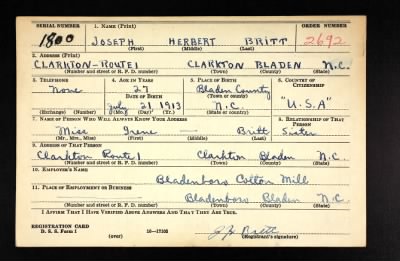 SERIAL NUMBER 1. NAME (Print) ORDER NUMBER
1800 JOSEPH HERBERT BRITT 2692
(First) (Middle) (Last)
2. ADDRESS (Print)
CLARKTON-ROUTE 1 CLARKTON BLADEN N.C.
(Number and street or R. F. D. number) (Town) (County) (State)
3. TELEPHONE 4. AGE IN YEARS 5. PLACE OF BIRTH 6. COUNTRY OF CITIZENSHIP
None 27 Bladen County
DATE OF BIRTH (Town or county)
July 21 1913 N.C. "U.S.A"
(Exchange) (Number) (Mo.) (Day) (Yr.) (State or country)
7. NAME OF PERSON WHO WILL ALWAYS KNOW YOUR ADDRESS 8. RELATIONSHIP OF THAT PERSON
Miss Irene — Britt Sister
(Mr., Mrs., Miss) (First) (Middle) (Last)
9. ADDRESS OF THAT PERSON
Clarkton Route 1 Clarkton Bladen N.C.
(Number and street or R. F. D. number) (Town) (County) (State)
10. EMPLOYER'S NAME
Bladenboro Cotton Mill
11. PLACE OF EMPLOYMENT OR BUSINESS
— Bladenboro Bladen N.C.
(Number and street or R. F. D. number) (Town) (County) (State)
I AFFIRM THAT I HAVE VERIFIED ABOVE ANSWERS AND THAT THEY ARE TRUE.
REGISTRATION CARD
D. S. S. Form 1 (over) 16-17105 J H Britt
(Registrant's signature)